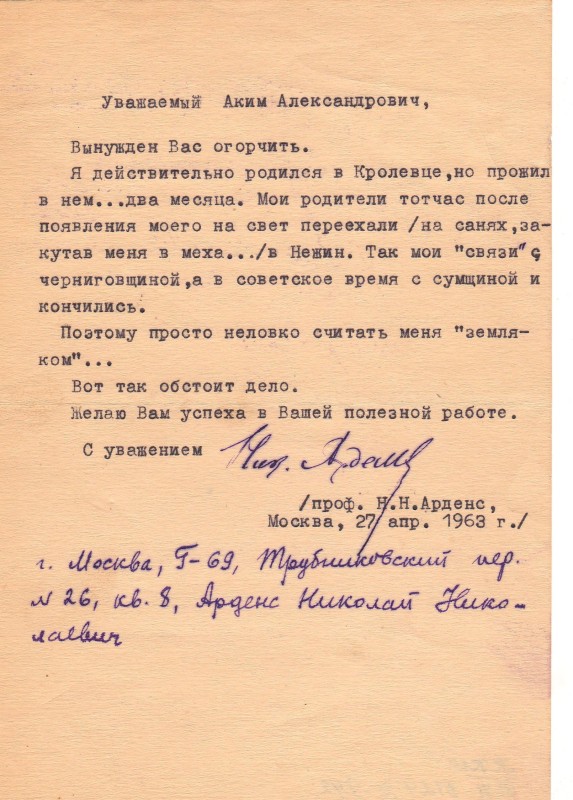 Уважаемый Аким Александрович,
Вынужден Вас огорчить.
Я действительно родился в Кролевце,но прожил
в нем...два месяца. Мои родители тотчас после
появления моего на свет переехали /на санях,за-
кутав меня в меха.../в Нежин. Так мои "связи" с
черниговщиной,а в советское время с сумщиной и
кончились.
Поэтому просто неловко считать меня "земля-
ком"...
Вот так обстоит дело.
Желаю Вам успеха в Вашей полезной работе.
С уважением Ник. Арденс
/проф. Н.Н.Арденс,
Москва, 27 апр. 1963 г./
г. Москва, Г-69, Трубниковский пер.
N 26, кв. 8, Арденс Николай Нико-
лаевич